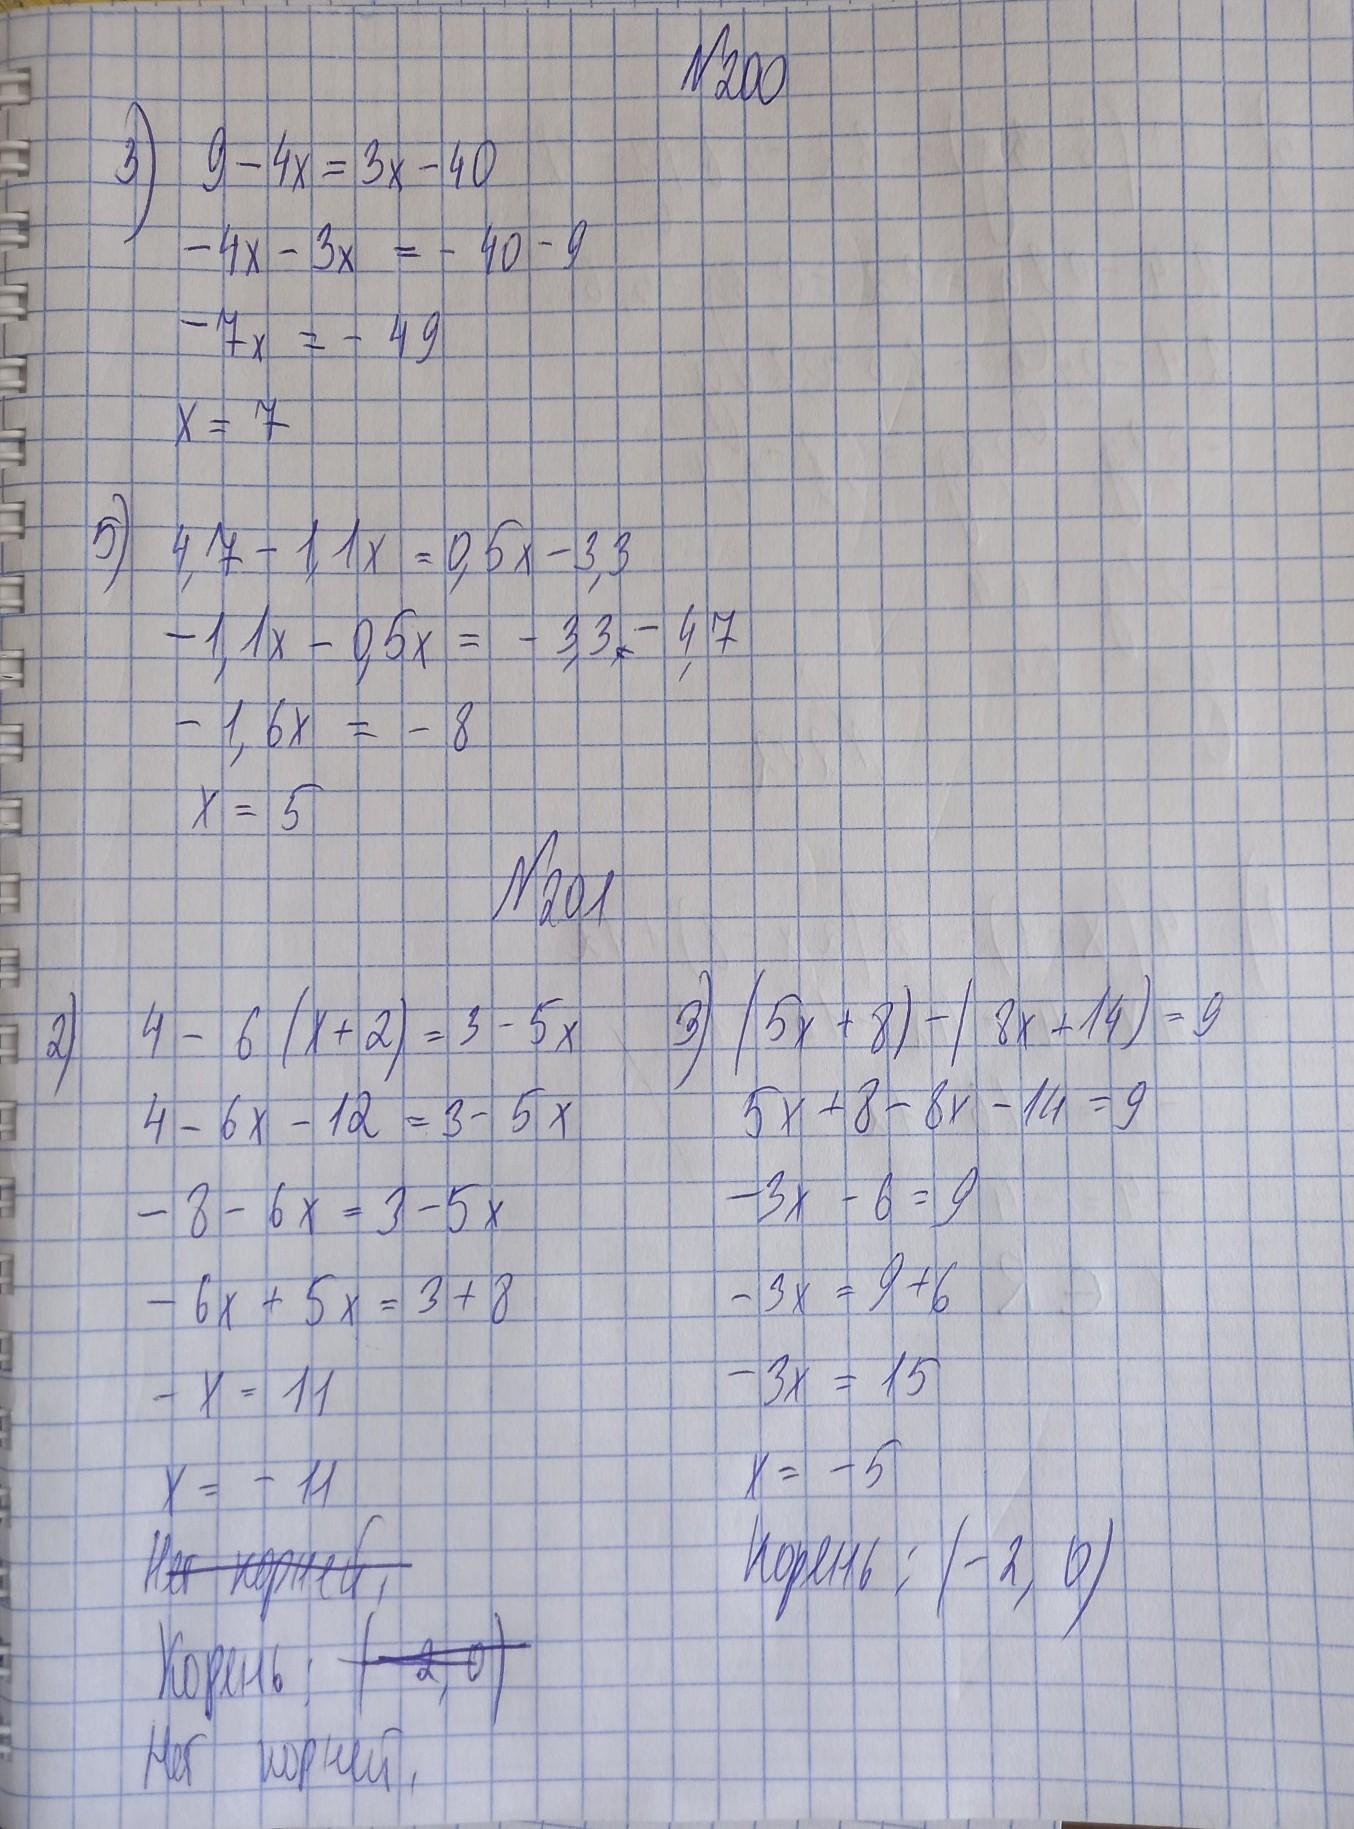 №200
3) 9-4x=3x-40
-4x-3x = -40-9
-7x = -49
x = 7
5) 4,7-1,1x=0,5x-3,3
-1,1x-0,5x = -3,3-4,7
-1,6x = -8
x = 5
№201
2) 4-6(x+2)=3-5x
4-6x-12=3-5x
-8-6x=3-5x
-6x+5x=3+8
-x=11
x=-11
Нет корней.
Корень: (-2,0)
Нет корней.
3) (5x+8)-(8x+14)=9
5x+8-8x-14=9
-3x-6=9
-3x=9+6
-3x=15
x=-5
Корень: (-2, 0)